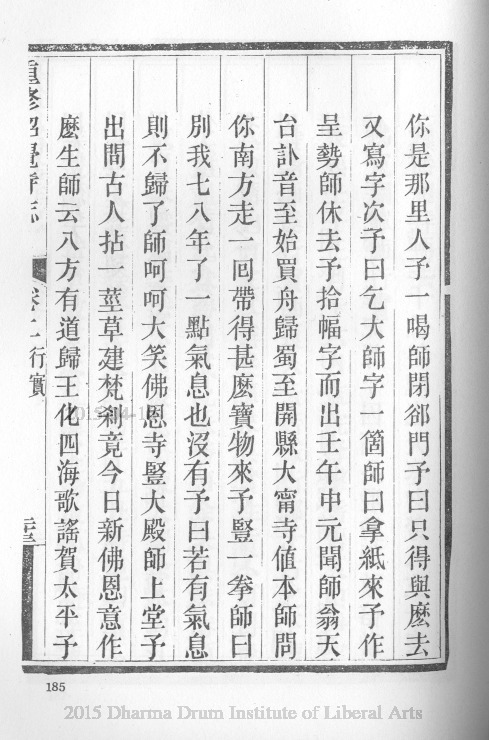 你是那里人予一喝師閉郤門予曰只得與麼去
又寫字次予曰乞大師字一箇師曰拿紙來予作
呈勢師休去予拾幅字而出壬午中元聞師翁天
台訃音至始買舟歸蜀至開縣大甯寺値本師問
你南方走一囘帶得甚麼寶物來予豎一拳師曰
別我七八年了一點氣息也沒有予曰若有氣息
則不歸了師呵呵大笑佛恩寺豎大殿師上堂予
出問古人拈一莖草建梵刹竟今日新佛恩意作
麼生師云八方有道歸王化四海歌謠賀太平予
重修昭覺寺志 卷二 行實
185
2015 Dharma Drum Institute of Liberal Arts